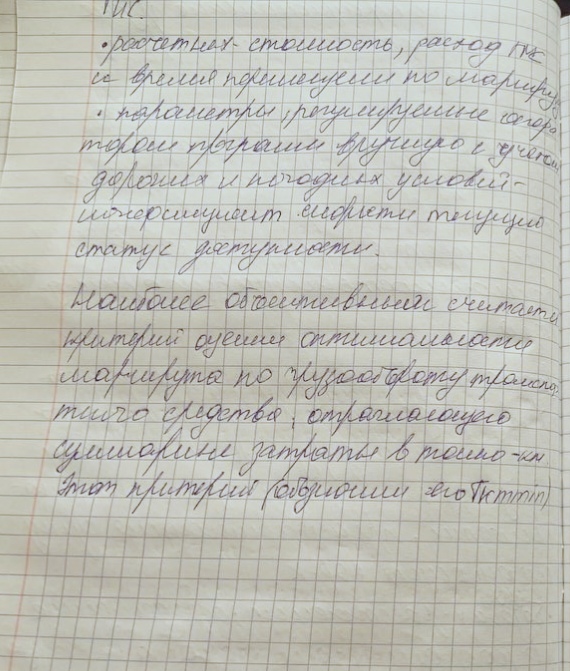 ГИС.
• расчетных - стоимость, расход ГСМ
и время перемещения по маршруту
• параметры, регулируемые опера
тором программ вручную с учетом
дорожных и погодных условий -
коэффициент скорости текущий
статус доступности.
Наиболее объективным считается
критерий оценки оптимальности
маршрута по грузообороту транспор
тного средства, отражающего
суммарные затраты в тонно-км
Этот критерий (обозначим его Гкmmin)